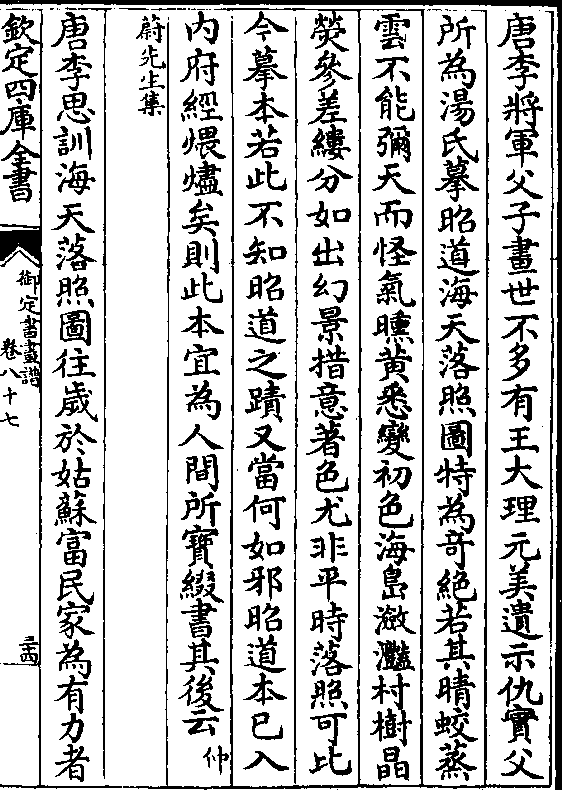 唐李將軍父子畫世不多有王大理元美遺示仇實父
所為湯氏摹昭道海天落照圖特為奇絕若其晴蛟蒸
雲不能彌天而怪氣曛黄悉變初色海島瀲灩村樹晶
熒參差縷分如出幻景措意著色尤非平時落照可比
今摹本若此不知昭道之蹟又當何如邪昭道本已入
内府經煨燼矣則此本宜為人間所寶綴書其後云仲
蔚先生集
唐李思訓海天落照圖往歲於姑蘇富民家為有力者
欽定四庫全書
御定書畫譜
卷八十七
三四